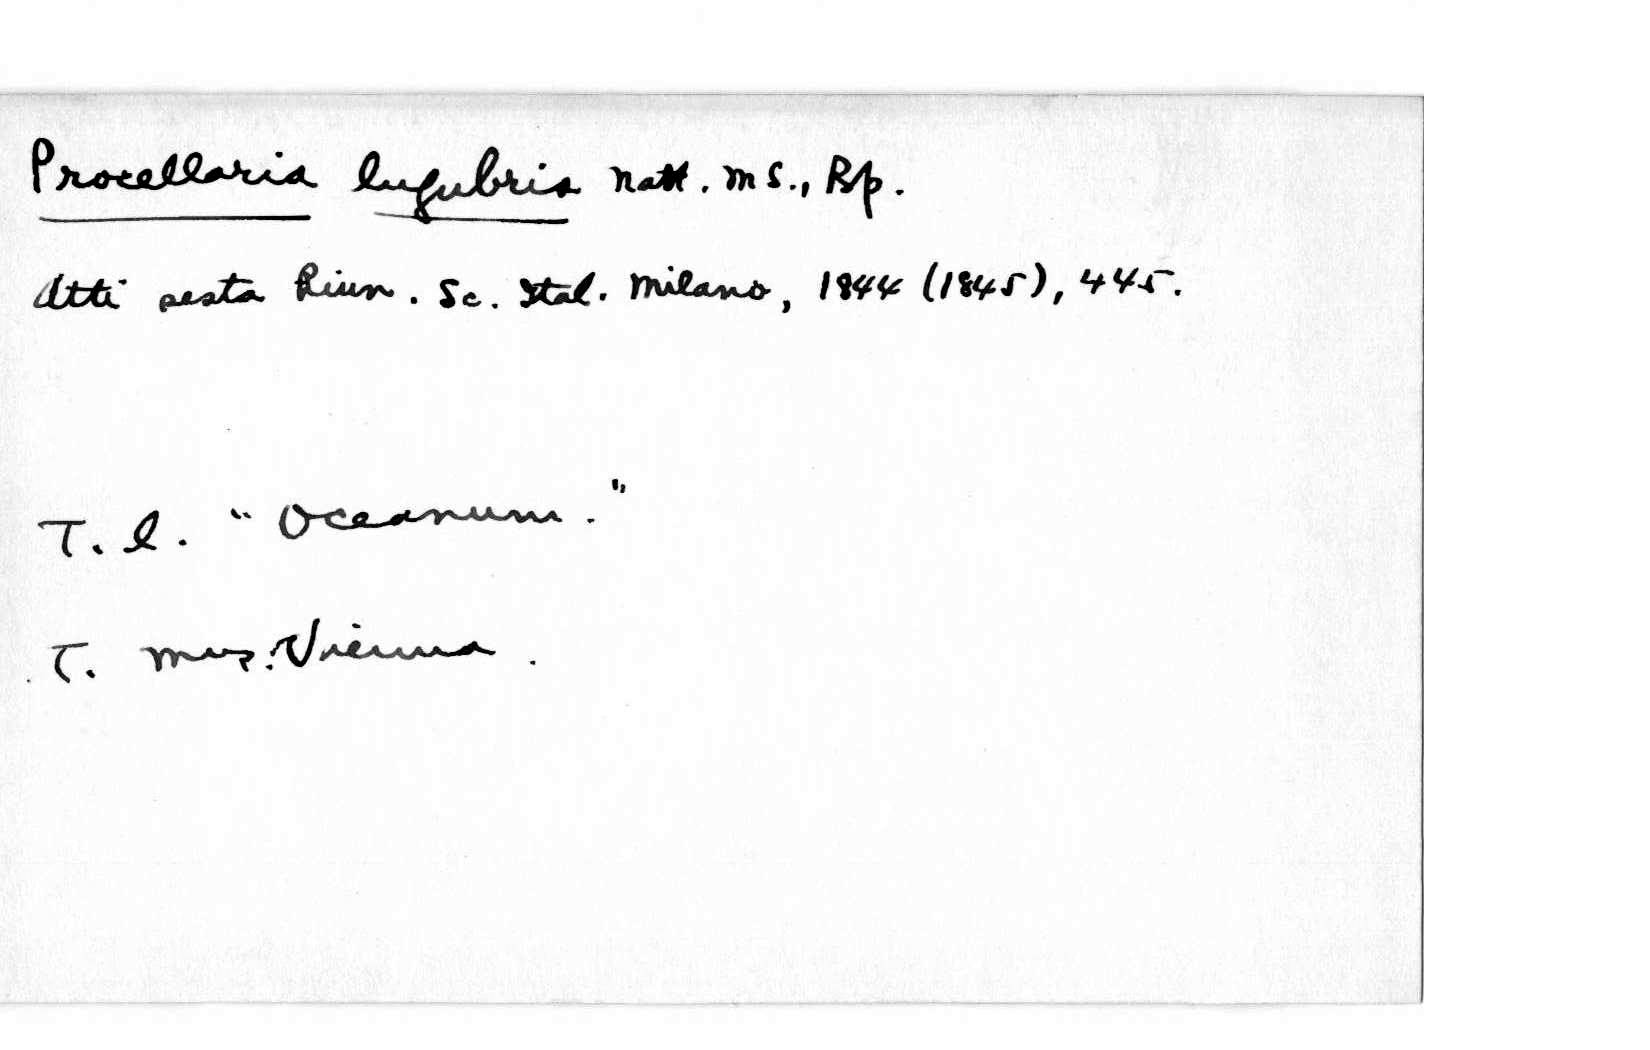 Procellaria lugubris Natt. MS., Bp.
Atti sesta Riun. Sc. Ital. Milano, 1844 (1845), 445.
T. l. "Oceanum."
T. Mus. Vienna.